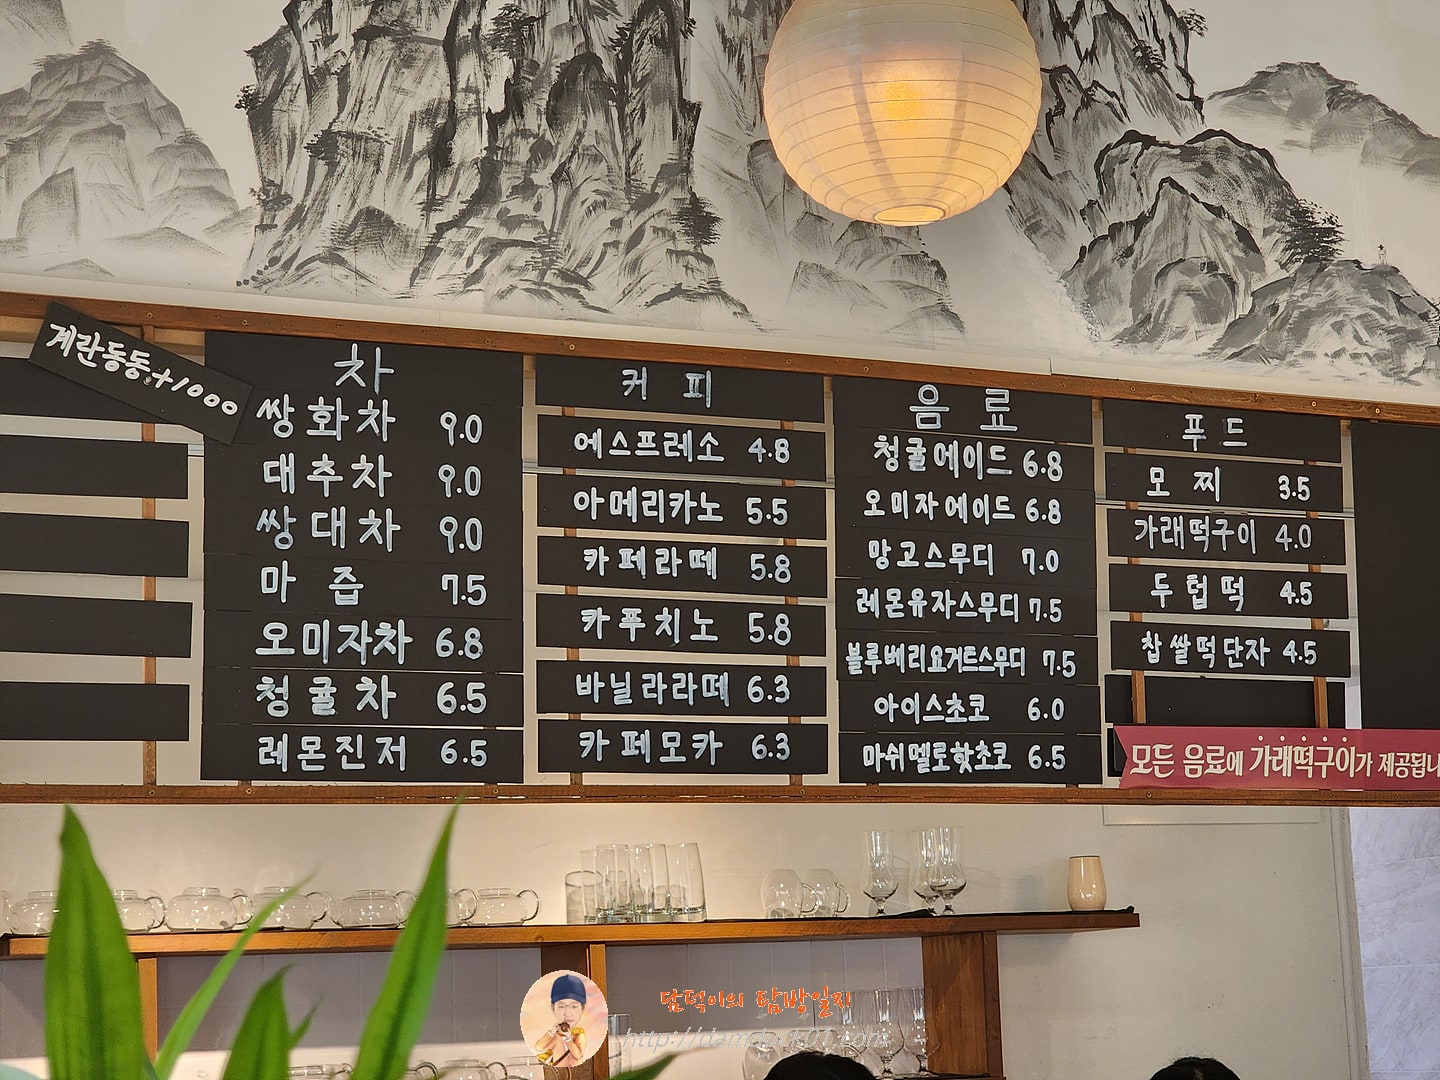 계란동동.+1000
차
쌍화차 9.0
대추차 9.0
쌍대차 9.0
마즙 7.5
오미자차 6.8
청귤차 6.5
레몬진저 6.5
커피
에스프레소 4.8
아메리카노 5.5
카페라떼 5.8
카푸치노 5.8
바닐라라떼 6.3
카페모카 6.3
음료
청귤에이드 6.8
오미자에이드 6.8
망고스무디 7.0
레몬유자스무디 7.5
블루베리요거트스무디 7.5
아이스초코 6.0
마쉬멜로핫초코 6.5
푸드
모찌 3.5
가래떡구이 4.0
두텁떡 4.5
찹쌀떡단자 4.5
모든 음료에 가래떡구이가 제공됩니
담덕이의 탐방일지